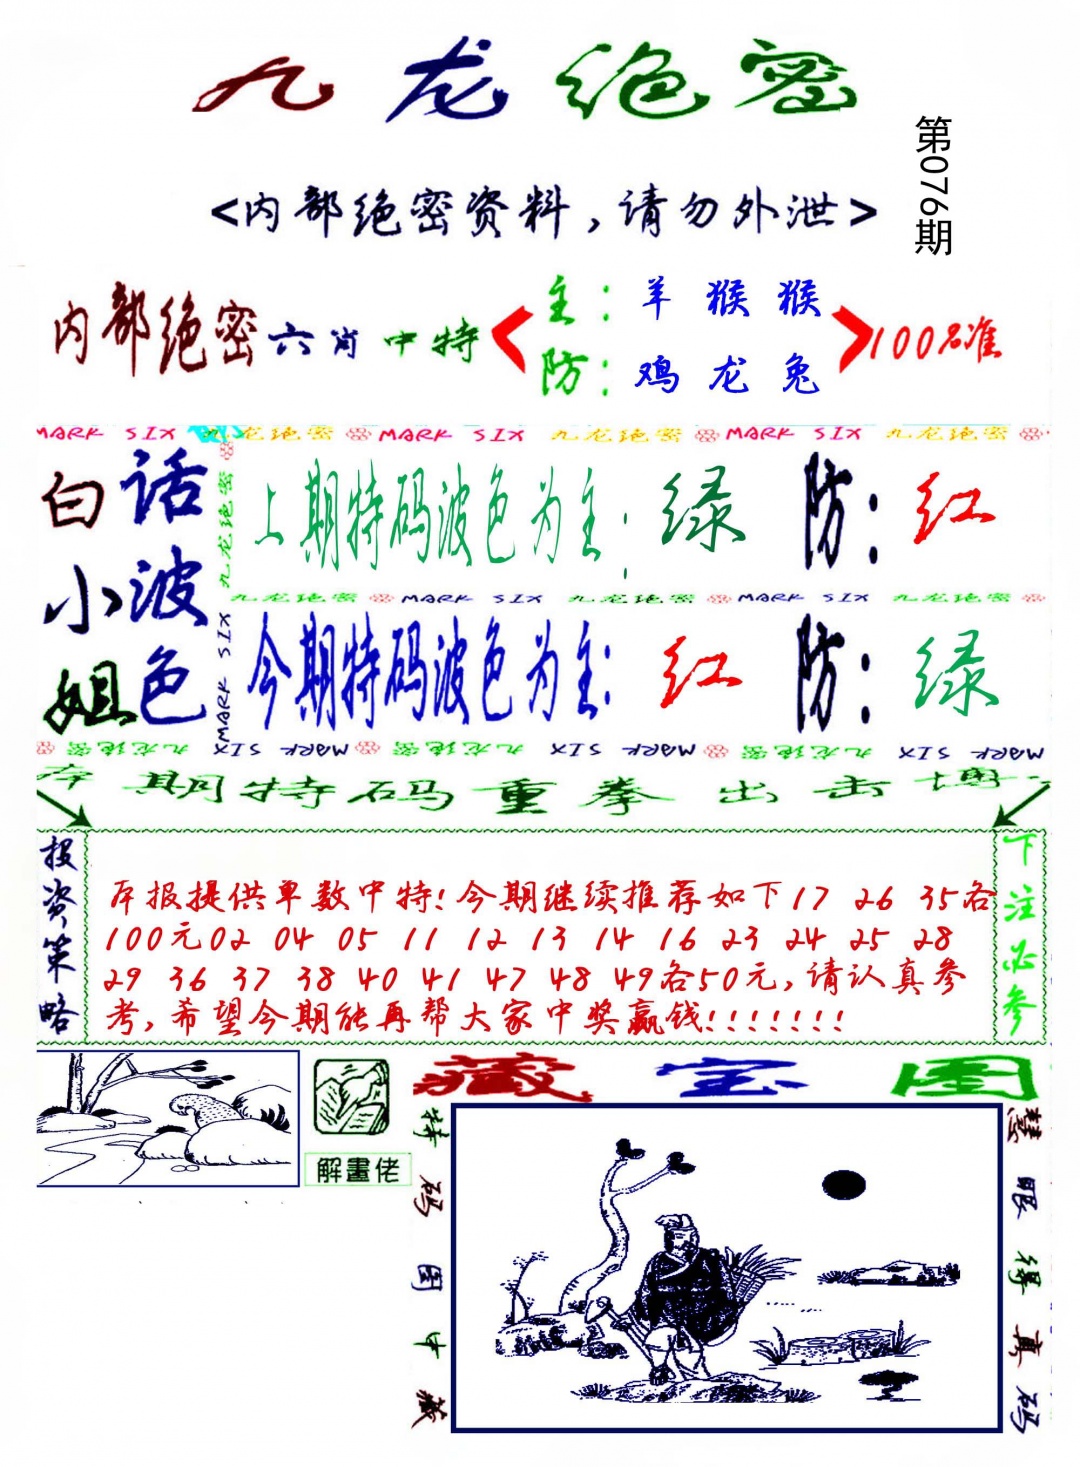 九龙绝密
第076期
<内部绝密资料,请勿外泄>
内部绝密六肖中特
主:羊猴猴
防:鸡龙兔
100%准
MARK SIX 九龙绝密 MARK SIX 九龙绝密 MARK SIX 九龙绝密
九龙绝密
MARK SIX
白小姐
话波色
上期特码波色为主:绿 防:红
九龙绝密 MARK SIX 九龙绝密 MARK SIX 九龙绝密
今期特码波色为主:红 防:绿
MARK SIX 九龙绝密 MARK SIX 九龙绝密 MARK SIX 九龙绝密
本期特码重拳出击博
投资策略
本报提供单数中特!今期继续推荐如下17 26 35各
100元02 04 05 11 12 13 14 16 23 24 25 28
29 36 37 38 40 41 47 48 49各50元,请认真参
考,希望今期能再帮大家中奖赢钱!!!!!!!
下注必参
解畫佬
藏宝图
特码图中藏
慧眼得真码